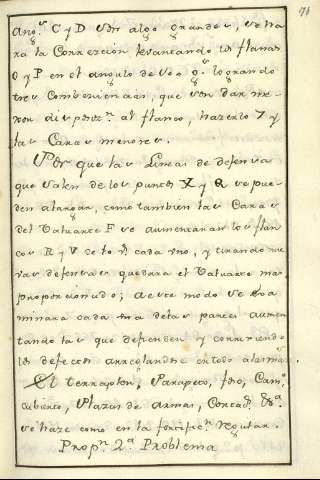 71
ang.s C y D son algo grandes, se ha
ra la Correccion levantando los flancos
O y P en el angulo de 100 g.s logrando
tres Combeniencias, que son dar me
xor disposn. al flanco, hazerlo 7 y
las Caras menores.
Por que las Lineas de defensa
que salen de los puntos X y Q se pue
den alargar, como tambien las Caras
del Valuarte F se aumentaran los flan
cos R y V de to 2 cada uno, y tirando nue
vas defensas quedara el Valuarte mas
proporcionado; de este modo se exa
minara cada una de las partes aumen
tando las que defienden y corriendo
los defectos arreglandose en todo a las max.
El terraplen, Parapeto, foso, Cam.o
cubierto, Plazas de armas, Contrad. &a.
se haze como en la fortific.n regular.
Propn. 2a Problema